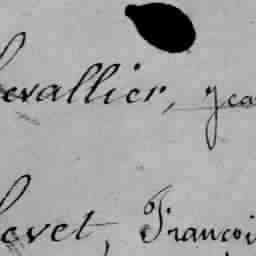 hevallier, Jea
hevet, Françoi